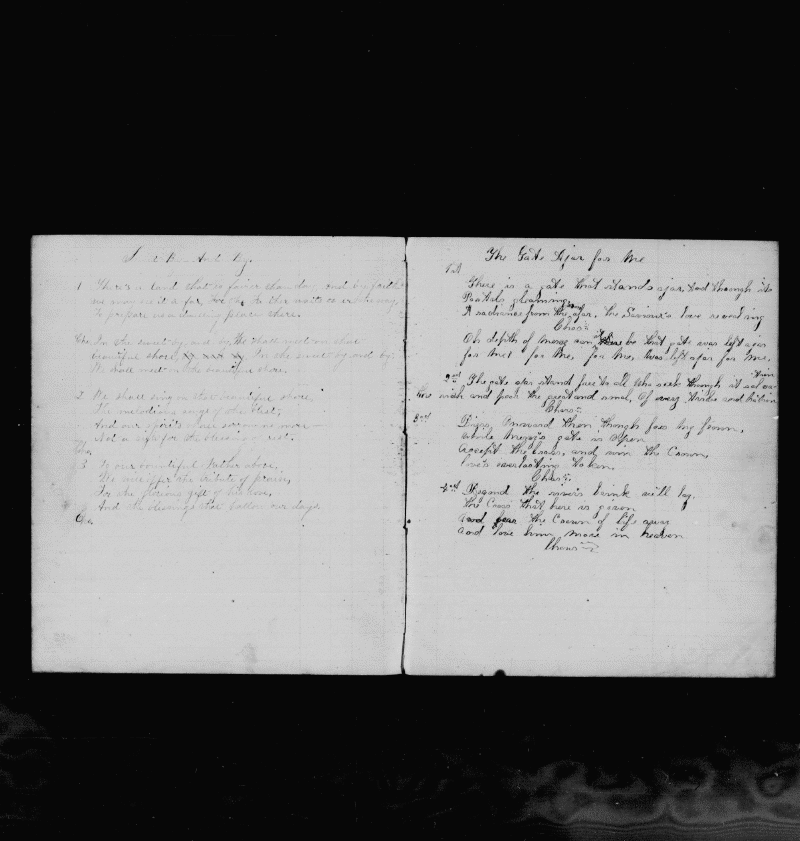 By And By
1 There's a land that is fairer than day, and by faith
we may see it a far, For the Father waits over the way
To prepare us a dwelling place there.
Cho. In the sweet by and by, We shall meet on that
beautiful shore, In the sweet by and by,
We shall meet on the beautiful shore.
2 We shall sing on that beautiful shore,
The melodious songs of the blest,
And our spirits shall sorrow no more
Not a sigh for the blessing of rest.
Cho.
3 To our bountiful Father above,
We will offer the tribute of praise,
For the glorious gift of his love,
And the blessings that hallow our days.
Cho.
The Gate Ajar for Me
1st
There is a gate that stands ajar, and through its
Portals gleaming
A radiance from the afar, the Saviour's love revealing
Chos
Oh depth of mercy can there be that gate was left ajar
for me? for me, for me, was left ajar for me.
2nd The gate ajar stand free to all who seek through it salvation
the rich and poor the great and small, Of every tribe and nation
Chos
3rd
Press Onward then though foes may frown,
while mercy's gate is Open
accept the cross, and win the Crown,
love's everlasting token.
Chos
4th Beyond the river's brink will lay
the Cross that here is given
and bear the Crown of life away
and love him more in heaven
Chous